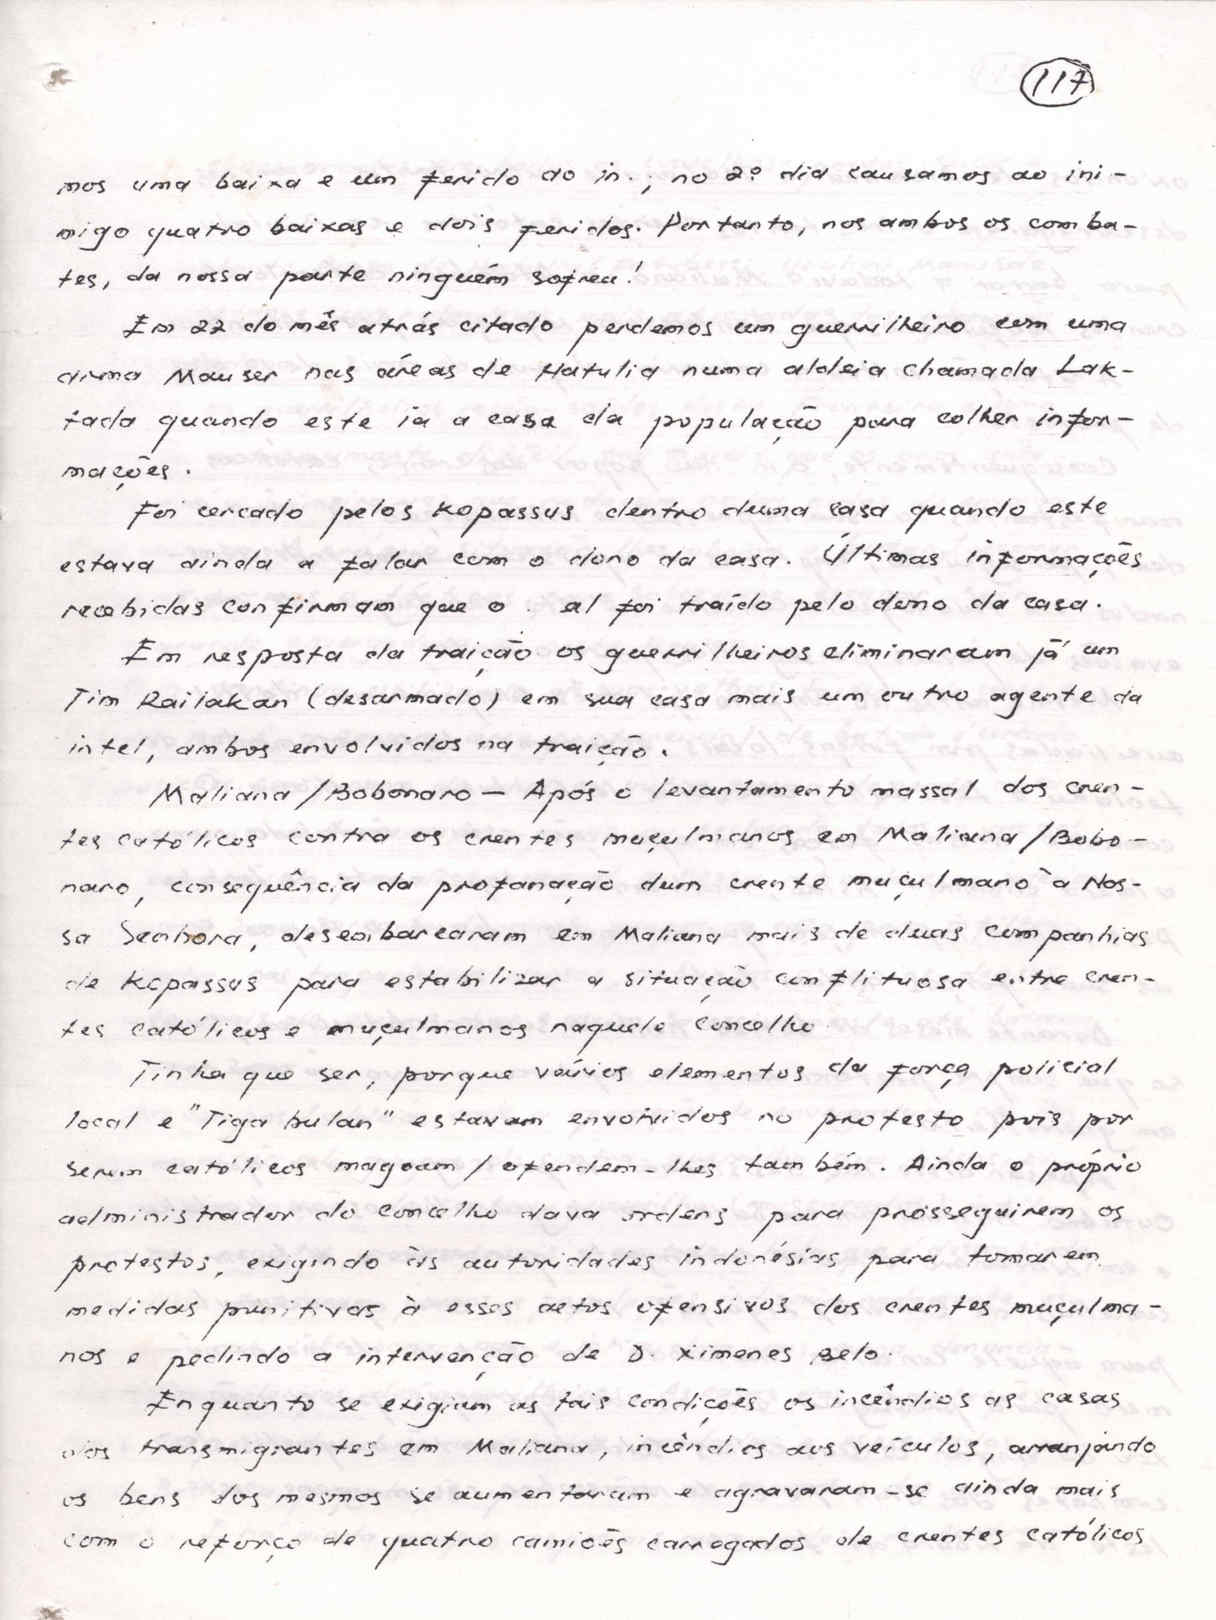 117
mos uma baixa e um ferido ao in.; no 2º dia causamos ao ini-
migo quatro baixas e dois feridos. Portanto, nos ambos os comba-
tes, da nossa parte ninguém sofreu!
Em 22 do mês atrás citado perdemos um guerrilheiro com uma
arma Mauser nas áreas de Hatulia numa aldeia chamada Lak-
tada quando este ia a casa da população para colher infor-
mações.
Foi cercado pelos Kopassus dentro duma casa quando este
estava ainda a falar com o dono da casa. Últimas informações
recebidas confirmam que o al foi traído pelo dono da casa.
Em resposta da traição os guerrilheiros eliminaram já um
Tim Railakan (desarmado) em sua casa mais um outro agente da
intel, ambos envolvidos na traição.
Maliana/Bobonaro - Após o levantamento massal dos cren-
tes católicos contra os crentes muçulmanos em Maliana/Bobo-
naro, consequência da profanação dum crente muçulmano à Nos-
sa Senhora, desembarcaram em Maliana mais de duas companhias
de Kopassus para estabilizar a situação conflituosa entre cren-
tes católicos e muçulmanos naquele concelho.
Tinha que ser, porque vários elementos da força policial
local e "Tiga bulan" estavam envolvidos no protesto pois por
serem católicos magoam/ofendem-lhes também. Ainda o próprio
administrador do concelho dava ordens para prosseguirem os
protestos, exigindo às autoridades indonésias para tomarem
medidas punitivas à esses actos ofensivos dos crentes muçulma-
nos e pedindo a intervenção de D. Ximenes Belo.
Enquanto se exigiam as tais condições os incêndios as casas
dos transmigrantes em Maliana, incêndios aos veículos, arranjando
os bens dos mesmos se aumentavam e agravaram-se ainda mais
com o reforço de quatro camiões carregados de crentes católicos